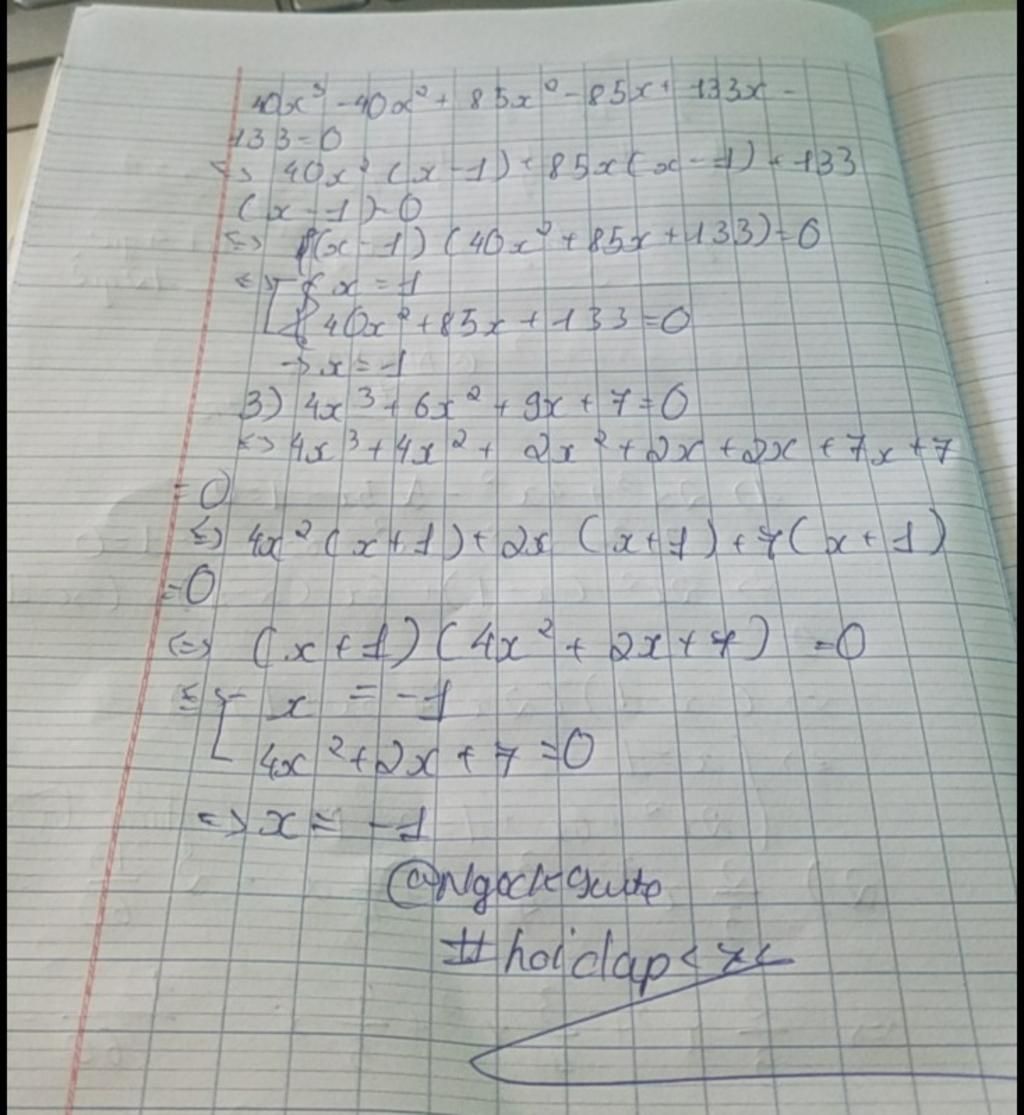 40x³ - 40x² + 85x² - 85x + 133x -
133 = 0
<=> 40x² (x - 1) + 85x (x - 1) + 133
(x - 1) = 0
<=> (x - 1) (40x² + 85x + 133) = 0
<=> [ x = 1
40x² + 85x + 133 = 0
-> x = 1
3) 4x³ + 6x² + 9x + 7 = 0
<=> 4x³ + 4x² + 2x² + 2x + 2x + 7x + 7
= 0
<=> 4x² (x + 1) + 2x (x + 1) + 7 (x + 1)
= 0
<=> (x + 1) (4x² + 2x + 7) = 0
<=> [ x = -1
4x² + 2x + 7 = 0
=> x = -1
#hoidap